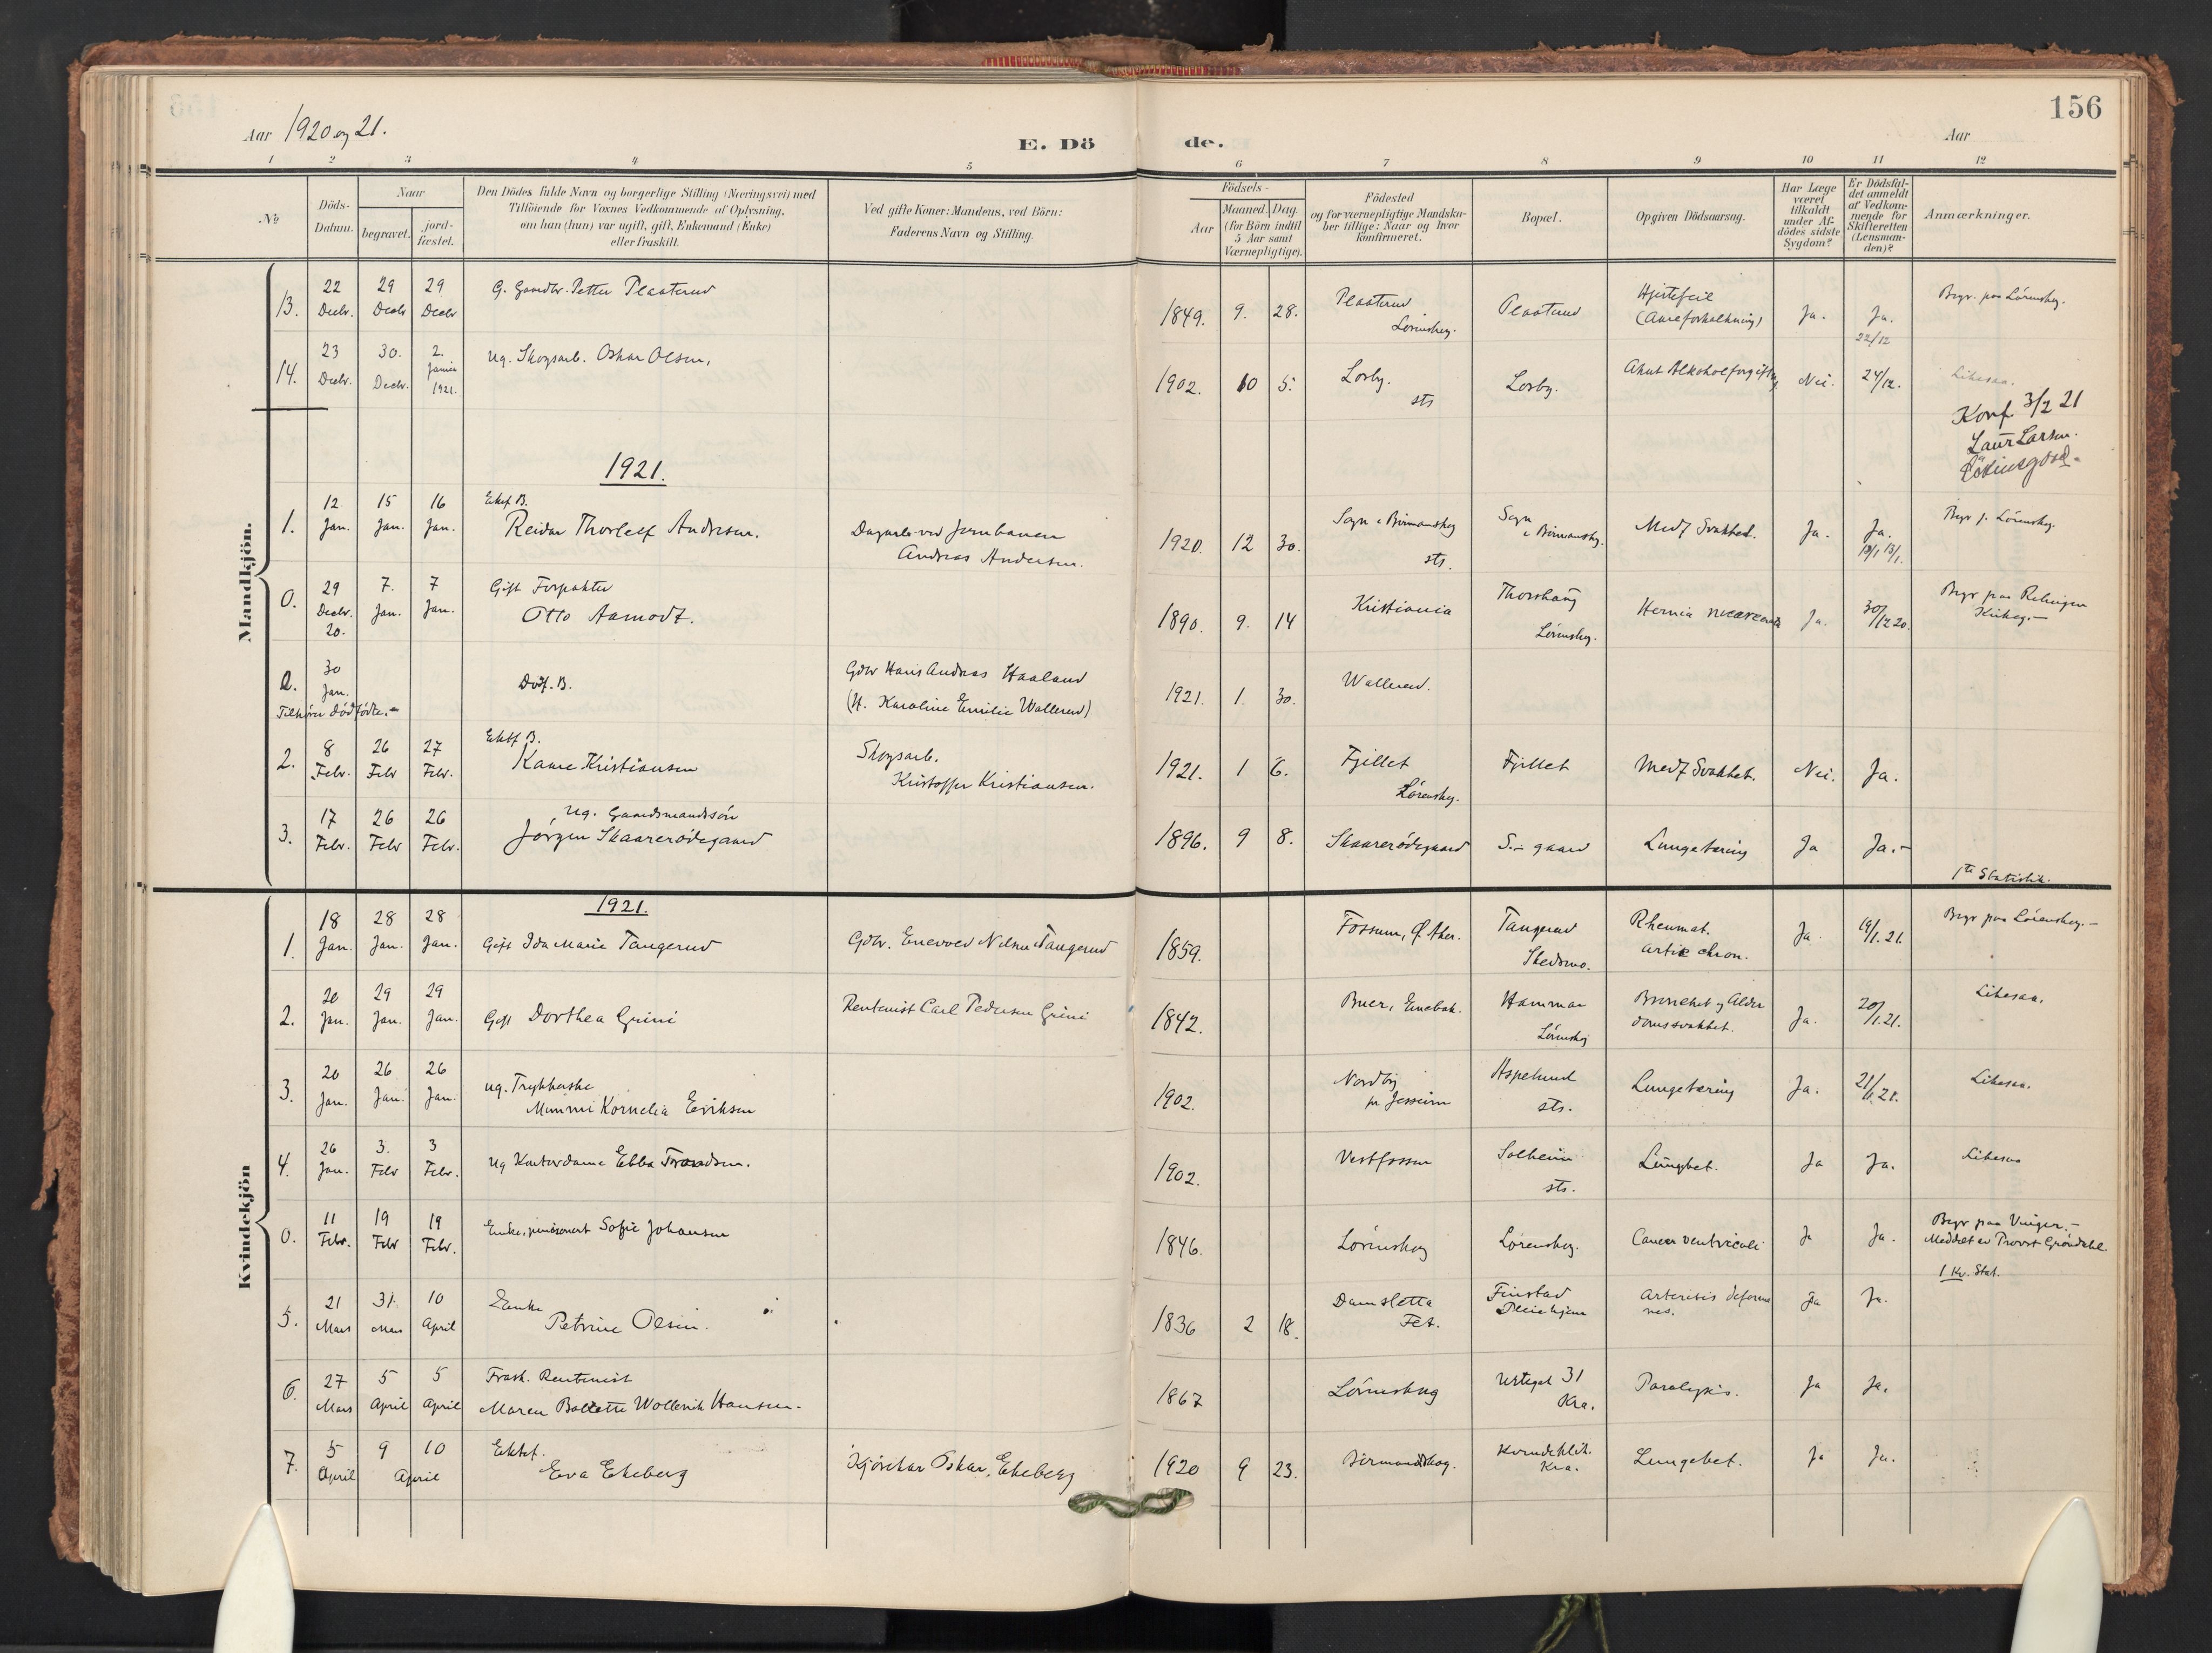 156
Aar 1920 og 21.
E. Dö de.
Aar
1 2 3 4 5 6 7 8 9 10 11 12
No
Döds-
Datum.
Naar
begravet.
jord-
fæstet.
Den Dödes fulde Navn og borgerlige Stilling (Næringsvei) med
Tilföiende for Voxnes Vedkommende af Oplysning,
om han (hun) var ugift, gift, Enkemand (Enke)
eller fraskilt.
Ved gifte Koner: Mandens, ved Börn:
Faderens Navn og Stilling.
Födsels-
Aar
Maaned. Dag.
(for Börn indtil
5 Aar samt
Værnepligtige).
Födested
og for værnepligtige Mandska-
ber tillige: Naar og hvor
konfirmeret.
Bopæl.
Opgiven Dödsaarsag.
Har Læge
været
tilkaldt
under Af-
dödes sidste
Sygdom?
Er Dödsfal-
det anmeldt
af Vedkom-
mende for
Skifteretten
(Lensman-
den)?
Anmærkninger.
Mandkjön.
13. 22 Decbr. 29 Decbr 29 Decbr G. Gaardbr. Petter Plaaterud 1849. 9. 28. Plaaterud Lörenskog. Plaaterud Hjertefeil (Aareforkalkning) Ja. Ja. 22/12 Begr. paa Lörenskog.
14. 23 Decbr. 30. Decbr. 2. Januar 1921. Ug. Skogsarb. Oskar Olsen. 1902. 10 5. Losby. sts Losby. Akut Alkoholforgiftng Nei. 24/12. Likesaa.
Konf. 3/2 21
Laur Larsen.
1921.
1. 12 Jan. 15 Jan. 16 Jan. Ektef. B. Reidar Thorleif Andersen. Dagarb. ved Jernbanen Andreas Andersen. 1920. 12 30. Sogn i Birmanskog sts. Sogn i Birmanskog. Medf Svakhed. Ja. Ja. 13/1 Begr. p. Lörenskog.
0. 29 Decbr. 20. 7. Jan. 7 Jan. Gift Forpakter Otto Aamodt. 1890. 9. 14 Kristiania Thorshaug Lörenskog. Hernia Ja. 30/12 20. Begr paa Rælingen Kirkeg.-
2. 30 Jan. Dödf. B. Gdbr Hans Andreas Haaland (H. Karoline Emilie Wallerud) 1921 1. 30. Wallerud.
Tilhører dödfödte.-
2. 8 Febr. 26 Febr 27 Febr. Ektf B. Kaare Kristiansen Skogsarb. Kristoffer Kristiansen. 1921. 1 6. Fjellet Lörenskog. Fjellet Medf Svakhet. Nei. Ja.
3. 17 Febr. 26 Febr 26 Febr. Ug. Gaardmandssön Jörgen Skaarerödegaard 1896. 9 8. Skaarerödegaard S.- gaard Lungetæring Ja Ja.-
1te Statistik.
Kvindekjön
1921.
1. 18 Jan. 28 Jan. 28 Jan. Gift Ida Marie Tangerud Gdbr. Enevold Nilsen Tangerud 1859. Fossum, Ø. Aker. Tangerud Skedsmo. Rheumat. artic chron. Ja. 19/1. 21. Begr paa Lörenskog.-
2. 20 Jan. 29 Jan. 29 Jan. Gift Dorthea Grini Rentenist Carl Pedersen Grini 1842. Buer, Enebak. Hammer Lörenskog Bronchit og Alder domssvakhet. Ja. 20/1.21. Likesaa.
3. 20 Jan. 26 Jan. 26 Jan. ug. Mimmi Kornelia Eriksen 1902. Nordby pr Jessheim Aspelund sts. Lungetæring Ja. 21/1.21. Likesaa.
4. 26 Jan. 3. Febr 3 Febr. Ug Kontordame Ebba Trondsen. 1902. Vestfossen Solheim sts. Lungbet. Ja Ja. Likesaa
0. 11 Febr. 19 Febr 19 Febr. Enke, pensionert Sofie Johansen 1846. Lörenskog Lörenskog. Cancer ventriculi Ja Ja. Begr paa Vinger.- Meddelt av Provst Gröndahl.
1 Kv. Stat.
5. 21 Mars 31. Mars 10 April Enke Petrine Olsen. 1836 2 18. Damsletta Fet. Finstad Pleiehjem Arteritis deforma nes. Ja Ja.
6. 27 Mars 5 April 5 April Frask. Rentenist Maren Bollette Wollerik Hansen. 1867 Lörenskog Urtegat 31 Kra. Paralysis. Ja Ja.
7. 5 April 9 10 April Ektef. Eva Ekeberg Kjörekar Oskar Ekeberg 1920 9 23. Birmandskog. Kvindeklik. Kra. Lungebet. Ja Ja.